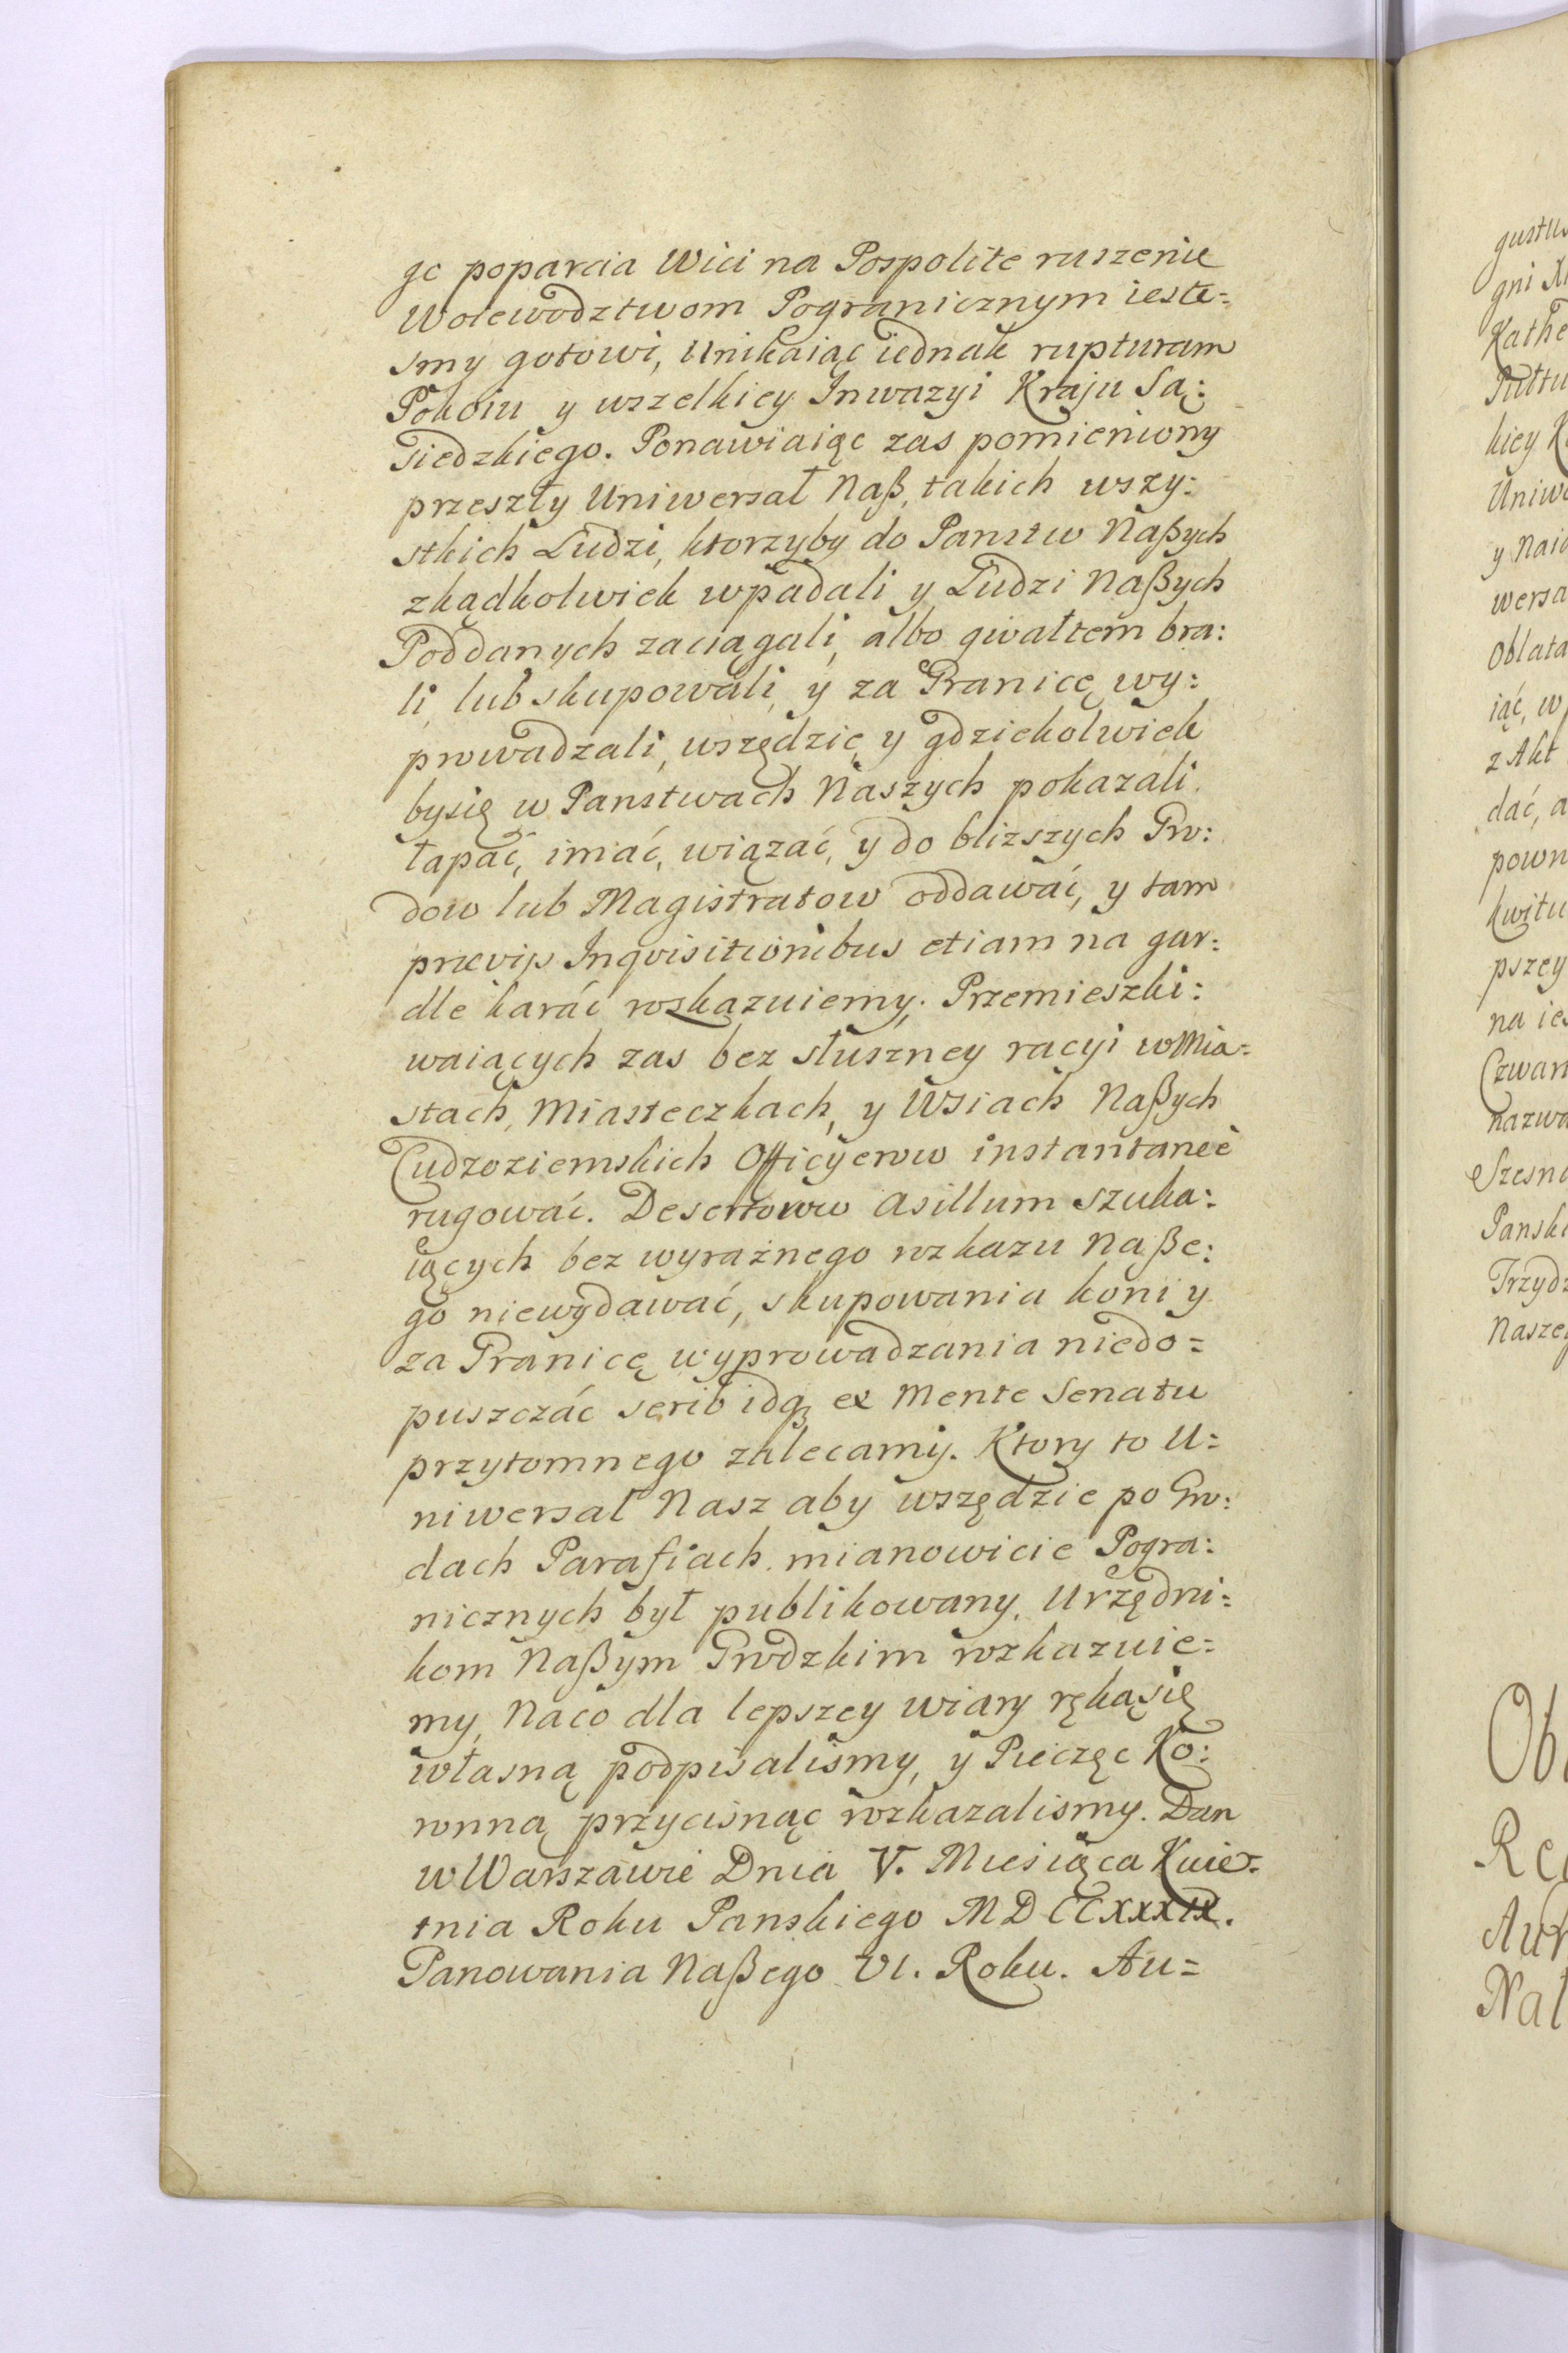 gc poparcia Wici na Pospolite ruszenie
Wolewodztwom Pogranicznym ieste=
smy gotowi, Unikaiąc iednak rupturam
Pokoiu y wszelkiey Inwazyi Kraju Są:
siedzkiego. Ponawiaiąc zas pomieniony
przeszły Uniwersał Naß, takich wszy:
stkich Ludzi, ktorzyby do Panstw Naßych
zkądkolwiek wpadali y Ludzi Naßych
Poddanych zaciągali, albo gwałtem bra:
li, lub skupowali, y za Granicę wy:
prowadzali, wszędzie y gdziekolwiek
bysię w Panstwach Naszych pokazali.
łapać, imać, wiązać, y do blizszych Gro:
dow lub Magistratow oddawać, y tam
prævijs Inqvisitionibus etiam na gar:
dle karać roskazuiemy. Przemieszki:
waiących zas bez słuszney racyi w Mia=
stach, Miasteczkach, y Wsiach Naßych
Cudzoziemskich Officyerow instantaneè
rugować. Desertorow Asillum szuka:
iących bez wyrażnego rozkazu Naße:
go niewydawać, skupowania koni y
za Granicę wyprowadzania niedo=
puszczać serio idq₃ ex Mente Senatu
przytomnego zalecamy. Ktory to U=
niwersał Nasz aby wszędzie po Gro:
dach Parafiach mianowicie Pogra:
nicznych był publikowany, Urzędni:
kom Naßym Grodzkim rozkazuie=
my, Naco dla lepszey wiary rękąsię
własną podpisalismy, y Pieczęc Ko:
ronną przycisnąc rozkazalismy. Dan
w Warszawie Dnia V. Miesiąca Kwie=
tnia Roku Panskiego MDCCXXXIX.
Panowania Naßego VI. Roku. Au=
gustus
gni
Kathe
Pułtu
kiey
Uniwe
y Naia
wersa
Oblata
iąć, w
z Akt
dać, a
pown
kwitu
pszey
na ies
Czwart
nazwa
Szesna
Panski
Trzydz
Naszeg
Ob
Re
Nat